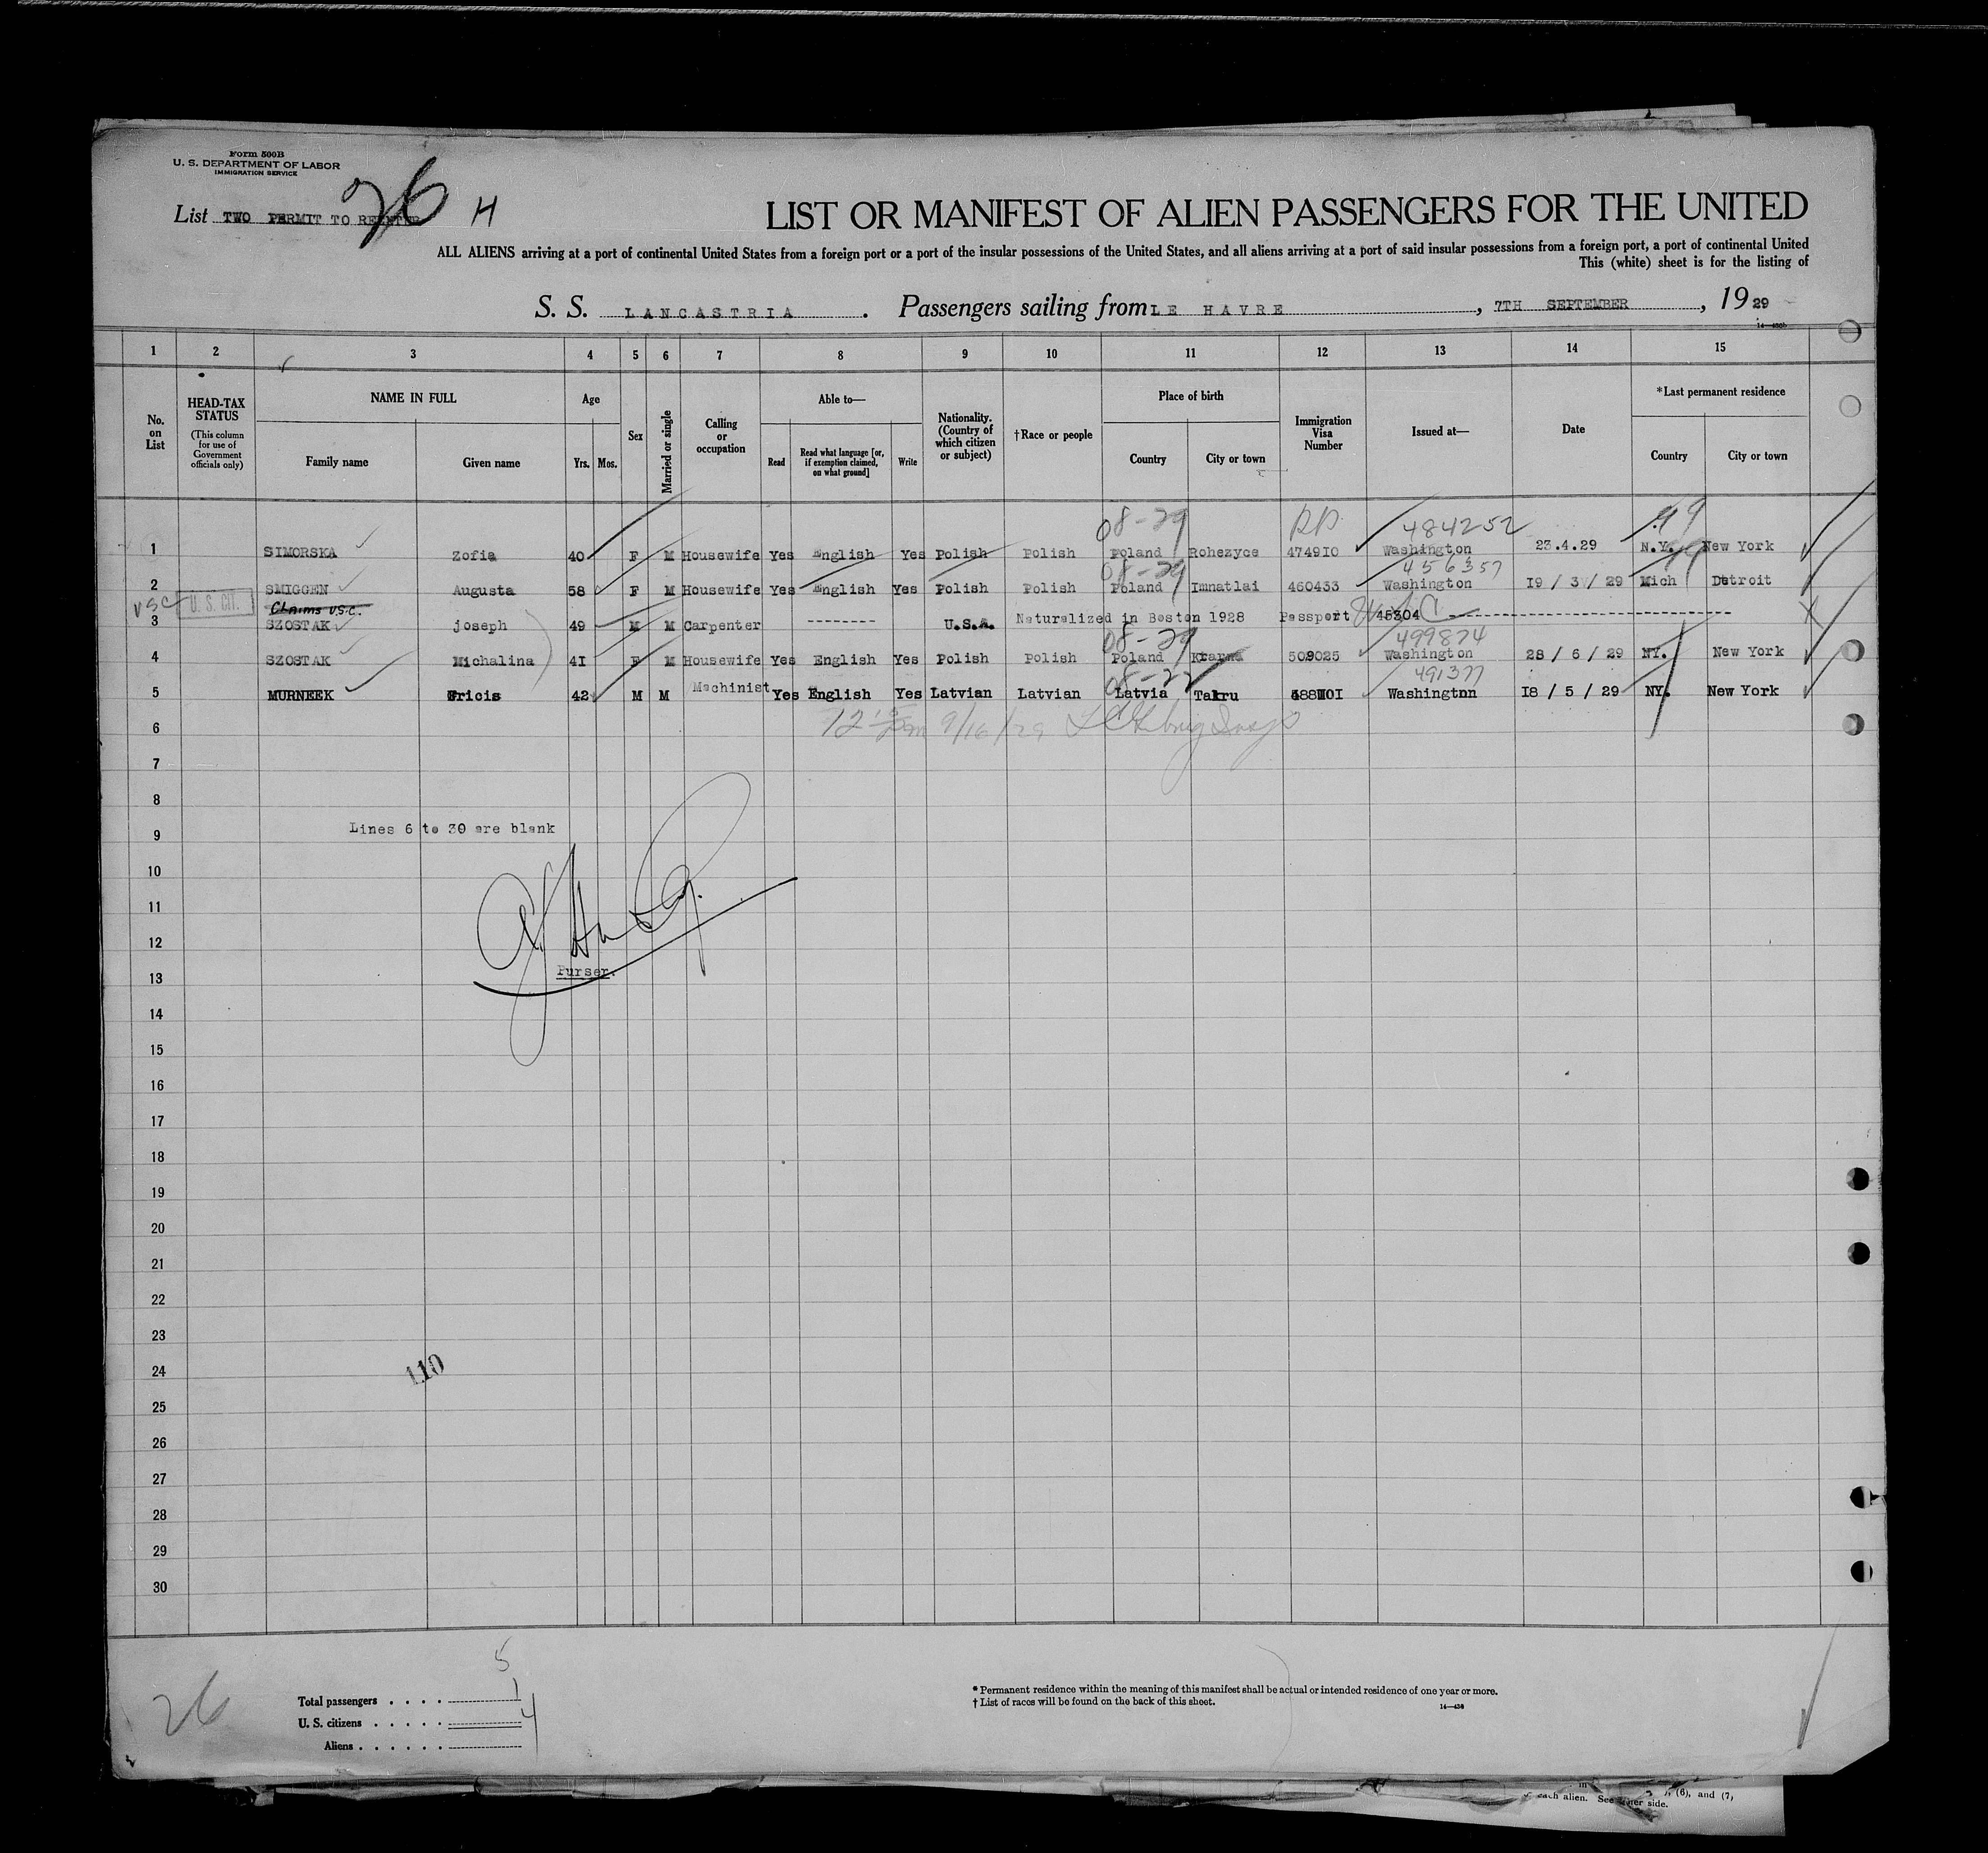 Form 500B
U. S. DEPARTMENT OF LABOR
IMMIGRATION SERVICE
26 H
List TWO PERMIT TO REENTER
LIST OR MANIFEST OF ALIEN PASSENGERS FOR THE UNITED
ALL ALIENS arriving at a port of continental United States from a foreign port or a port of the insular possessions of the United States, and all aliens arriving at a port of said insular possessions from a foreign port, a port of continental United
This (white) sheet is for the listing of
S. S. LANCASTRIA. Passengers sailing from LE HAVRE, 7TH SEPTEMBER, 1929
1 2 3 4 5 6 7 8 9 10 11 12 13 14 15
No. on List
HEAD-TAX STATUS
(This column for use of Government officials only)
NAME IN FULL
Family name Given name
Age
Yrs. Mos.
Sex
Married or single
Calling or occupation
Able to—
Read Read what language [or, if exemption claimed, on what ground] Write
Nationality. (Country of which citizen or subject)
†Race or people
Place of birth
Country City or town
Immigration Visa Number
Issued at—
Date
*Last permanent residence
Country City or town
08-29 RP 484252
1 SIMORSKA Zofia 40 F M Housewife Yes English Yes Polish Polish Poland Rohezyce 474910 Washington 23.4.29 N.Y. New York
08-29 456357
2 SMIGGEN Augusta 58 F M Housewife Yes English Yes Polish Polish Poland Imnatlai 460433 Washington 19 / 3 / 29 Mich Detroit
USC U. S. CIT. Claims U.S.C.
3 SZOSTAK joseph 49 M M Carpenter -------- U.S.A. Naturalized in Boston 1928 Passport 45304
08-29 499824
4 SZOSTAK Michalina 41 F M Housewife Yes English Yes Polish Polish Poland 509025 Washington 28 / 6 / 29 NY. New York
08-22 491377
5 MURNEEK Fricis 42 M M Machinist Yes English Yes Latvian Latvian Latvia Takru Washington 18 / 5 / 29 NY. New York
6
9/16/29
7
8
Lines 6 to 30 are blank
9
10
11
12
Purser.
13
14
15
16
17
18
19
20
21
22
23
24
110
25
26
27
28
29
30
26
Total passengers . . . . 5
U. S. citizens . . . . . 1
Aliens . . . . . . 4
* Permanent residence within the meaning of this manifest shall be actual or intended residence of one year or more.
† List of races will be found on the back of this sheet.
14—430
(6), and (7,
each alien. See other side.